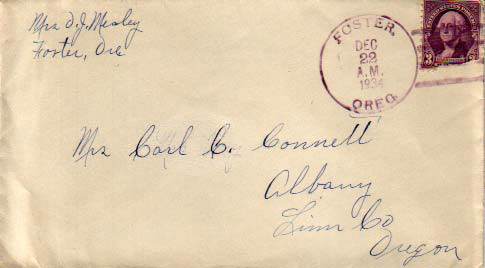 Mrs D. J. Mealey
Foster, Ore
FOSTER,
DEC
22
A.M.
1934
OREG.
3
Mrs Carl C. Connell
Albany
Linn Co
Oregon